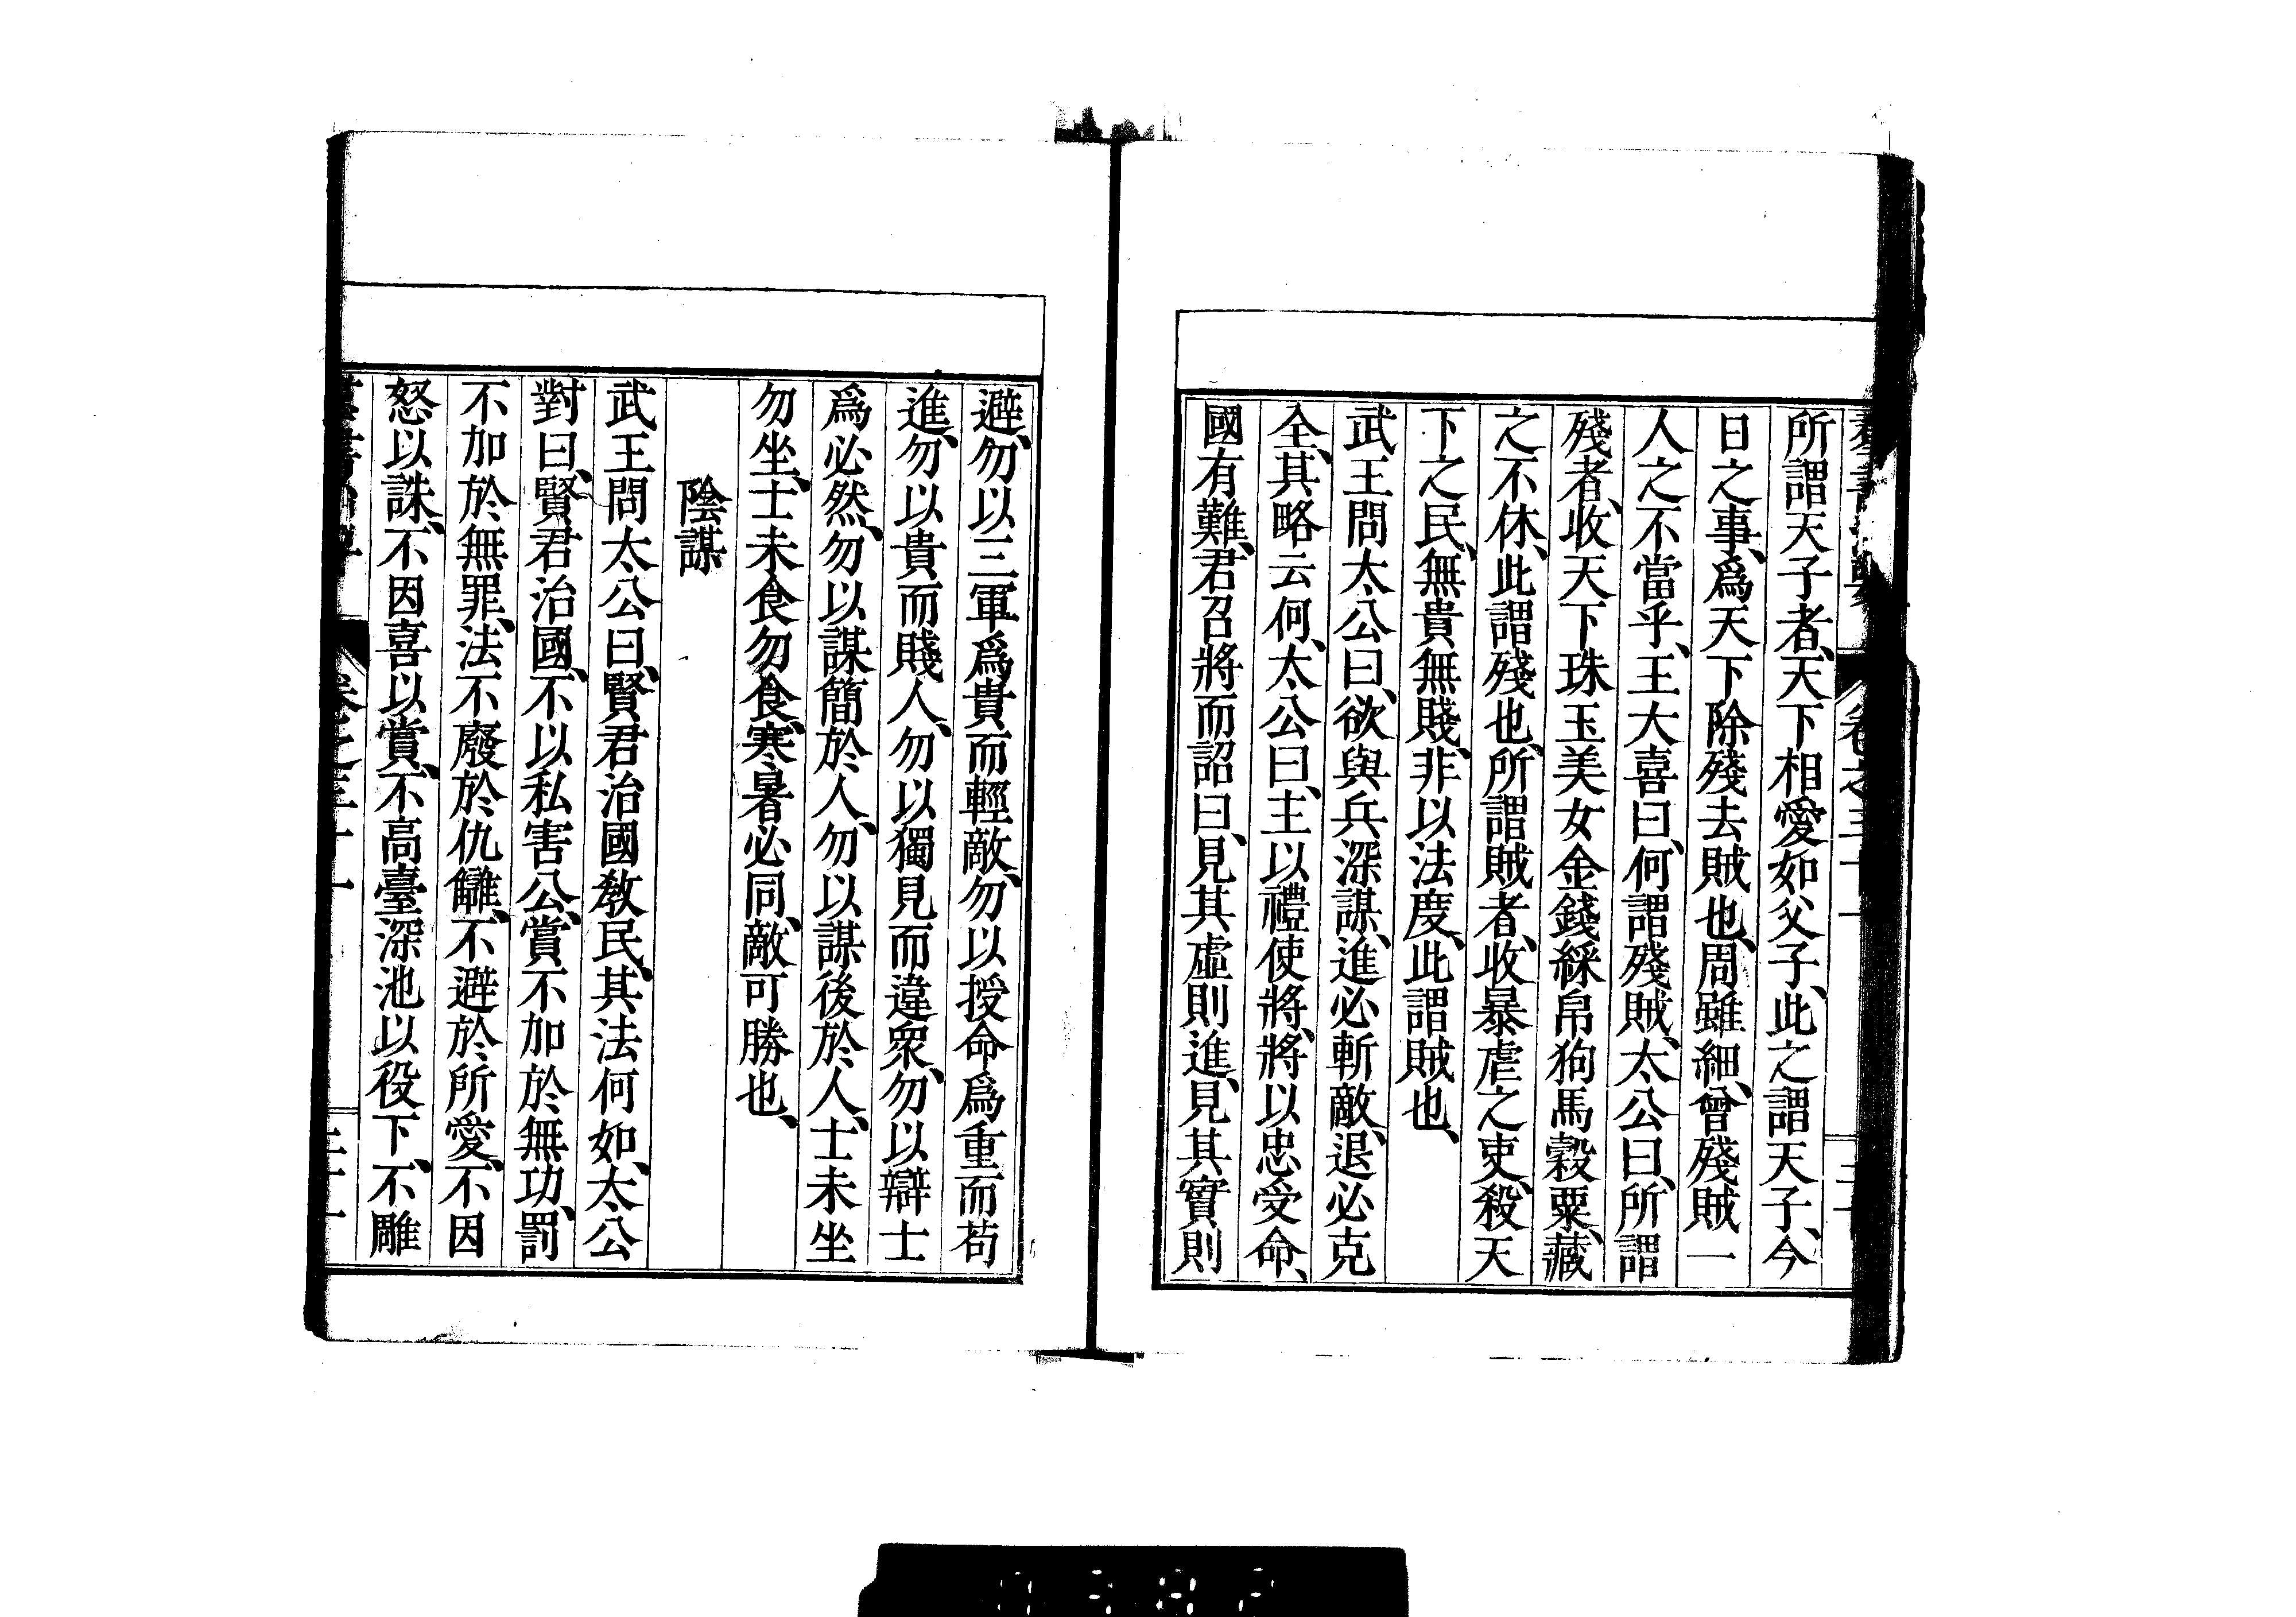 所謂天子者、天下相愛如父子、此之謂天子、今
日之事、爲天下除殘去賊也、周雖細、曾殘賊一
人之不當乎、王大喜曰、何謂殘賊、太公曰、所謂
殘者、收天下珠玉美女金錢綵帛狗馬穀粟、藏
之不休、此謂殘也、所謂賊者、收暴虐之吏、殺天
下之民、無貴無賤、非以法度、此謂賊也、
武王問太公曰、欲與兵深謀、進必斬敵、退必克
全、其略云何、太公曰、主以禮使將、將以忠受命、
國有難、君召將而詔曰、見其虛則進、見其實則
避、勿以三軍爲貴而輕敵、勿以授命爲重而苟
進、勿以貴而賤人、勿以獨見而違衆、勿以辯士
爲必然、勿以謀簡於人、勿以謀後於人、士未坐
勿坐、士未食勿食、寒暑必同、敵可勝也、
陰謀
武王問太公曰、賢君治國敎民、其法何如、太公
對曰、賢君治國、不以私害公、賞不加於無功、罰
不加於無罪、法不廢於仇讎、不避於所愛、不因
怒以誅、不因喜以賞、不高臺深池以役下、不雕